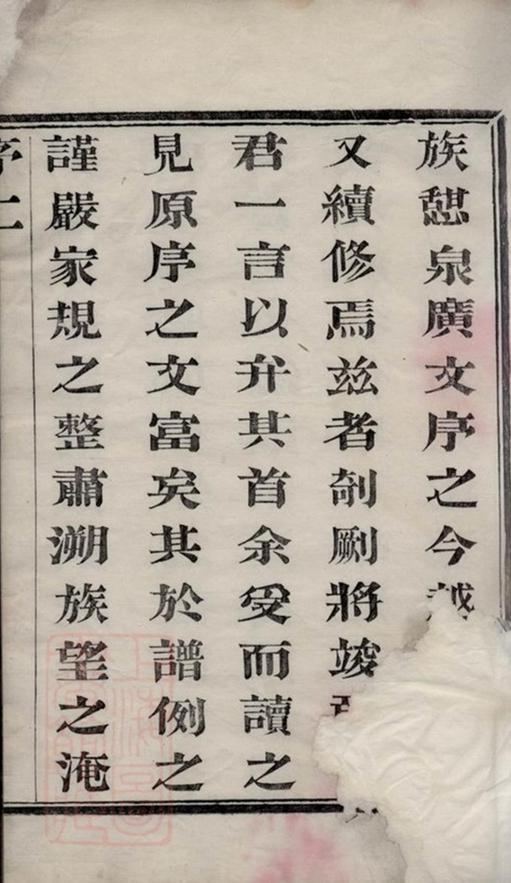 族憇泉廣文序之今越
又續修焉兹者剞劂將竣
君一言以弁其首余受而讀之
見原序之文富矣其於譜例之
謹嚴家規之整肅溯族望之淹
序二